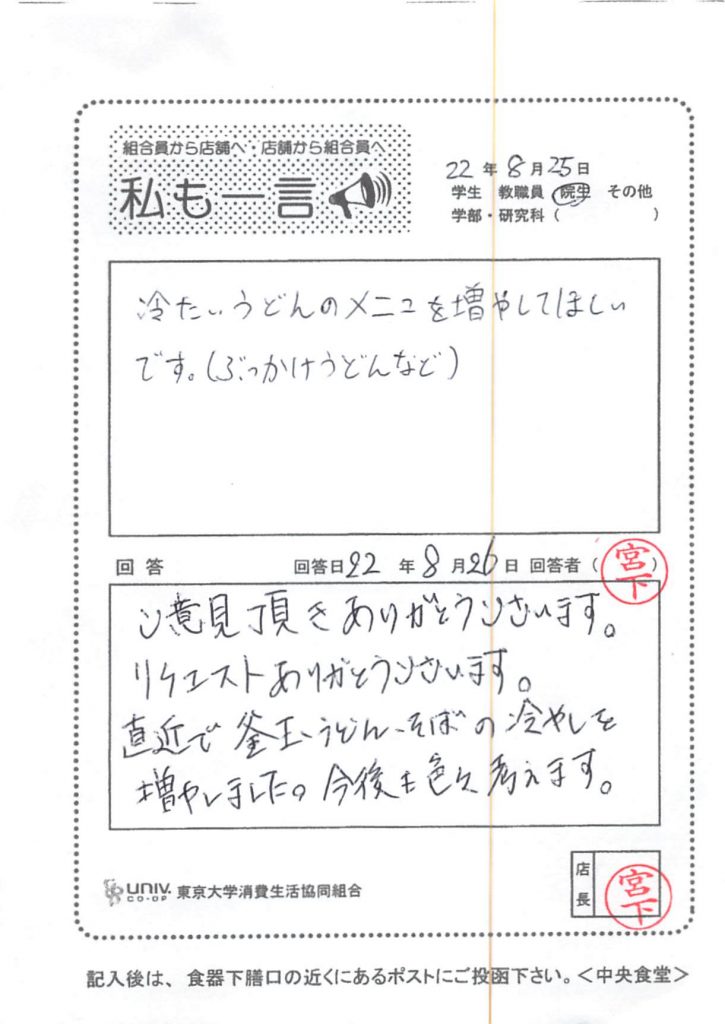 組合員から店舗へ・店舗から組合員へ
私も一言
22年8月25日
学生 教職員 院生 その他
学部・研究科（ ）
冷たいうどんのメニューを増やしてほしい
です。(ぶっかけうどんなど)
回答 回答日22年8月26日 回答者（宮下）
ご意見頂きありがとうございます。
リクエストありがとうございます。
直近で釜玉うどん・そばの冷やしを
増やしました。今後も色々考えます。
店長 宮下
UNIV. CO-OP 東京大学消費生活協同組合
記入後は、食器下膳口の近くにあるポストにご投函下さい。＜中央食堂＞